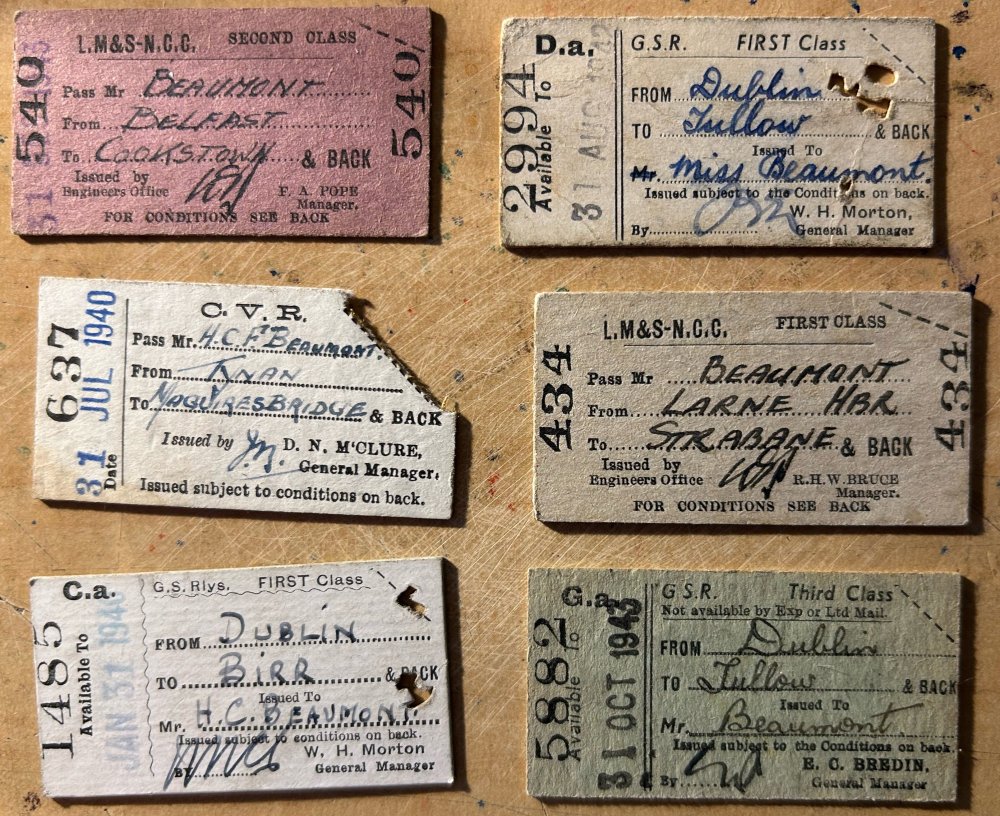 540
L.M&S-N.C.C. SECOND CLASS
Pass Mr BEAUMONT
From BELFAST
To COOKSTOWN & BACK
Issued by
Engineers Office
F. A. POPE
Manager.
FOR CONDITIONS SEE BACK
540
D.a.
2994
Available To
31 AUG
G.S.R. FIRST Class
FROM Dublin
TO Tullow & BACK
Issued To
Mr. Miss Beaumont.
Issued subject to the Conditions on back.
W. H. Morton,
By General Manager
637
31 JUL 1940
Date
C. V. R.
Pass Mr. H.C.F. BEAUMONT
From TYNAN
To MAGUIRESBRIDGE & BACK
Issued by D. N. M'CLURE,
General Manager.
Issued subject to conditions on back.
434
L.M&S-N.C.C. FIRST CLASS
Pass Mr BEAUMONT
From LARNE HBR
To STRABANE & BACK
Issued by
Engineers Office
R.H.W. BRUCE
Manager.
FOR CONDITIONS SEE BACK
434
C.a.
1485
Available To
JAN 31
G.S. Rlys. FIRST Class
FROM DUBLIN
TO BIRR & BACK
Issued To
Mr. H.C. BEAUMONT.
Issued subject to conditions on back.
W. H. Morton
BY General Manager
G.a.
5882
Available To
31 OCT 1943
G S R. Third Class
Not available by Exp or Ltd Mail.
FROM Dublin
TO Tullow & BACK
Issued To
Mr. Beaumont.
Issued subject to the Conditions on back.
E. C. BREDIN,
By General Manager